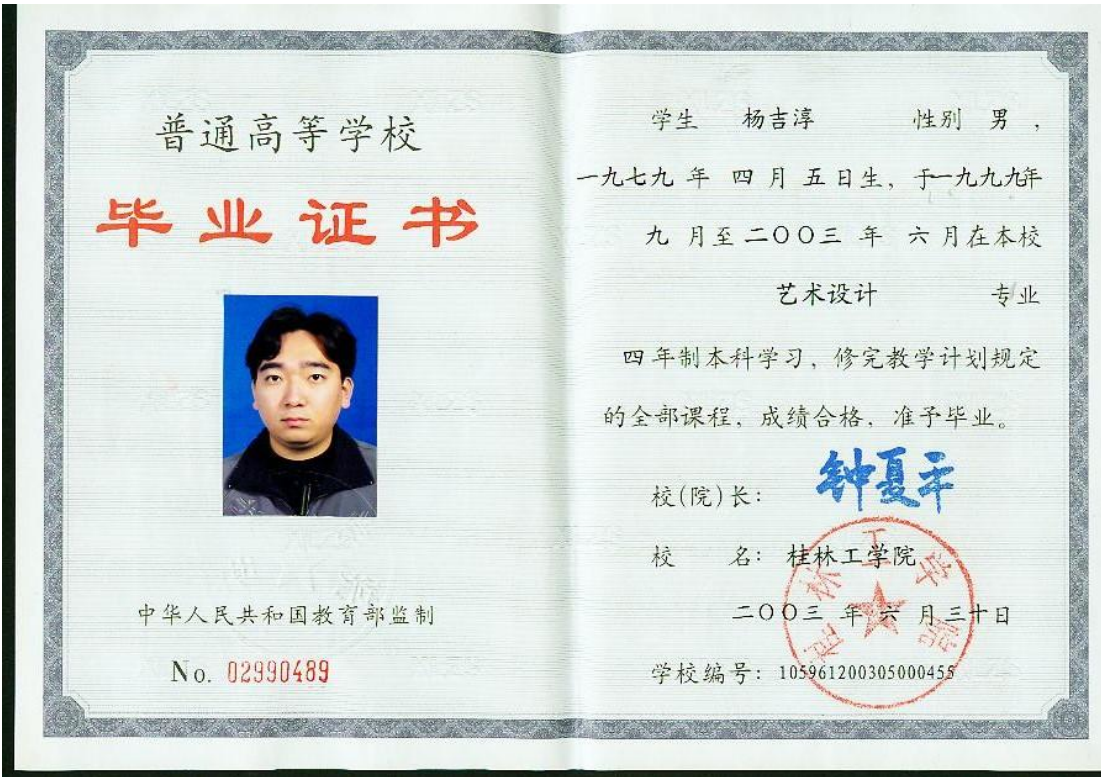 普通高等学校
毕业证书
中华人民共和国教育部监制
No. 02990489
学生 杨吉淳 性别 男 ,
一九七九 年 四 月 五日生, 于一九九九年
九 月至二〇〇三 年 六月在本校
艺术设计 专业
四年制本科学习, 修完教学计划规定
的全部课程, 成绩合格, 准予毕业。
校(院)长: 钟夏平
校 名: 桂林工学院
桂林工学院
二〇〇三 年 六 月三十日
学校编号: 105961200305000455